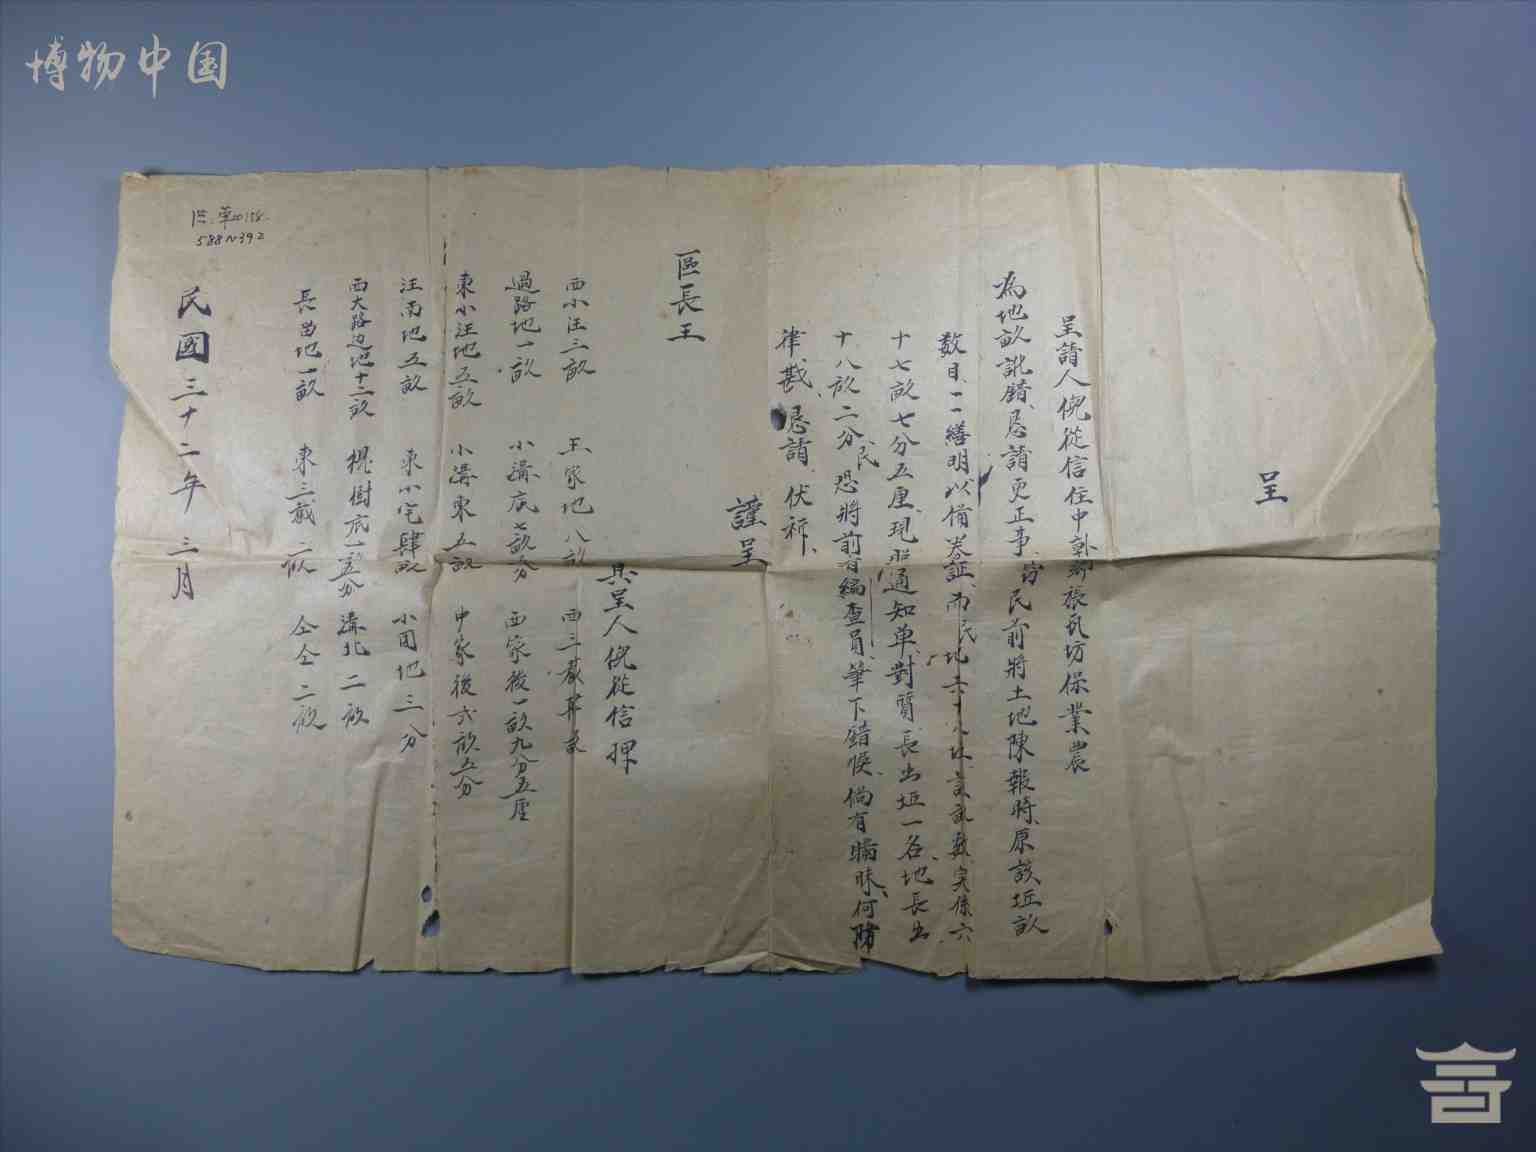 博物中国
呈
呈請人倪從信住中乾鄉張瓦坊保業農
為地畝訛錯、懇請更正事、窃民前將土地陳報時、原該坵畝
数目、一一繕明以備券証、而民地六十八畝言訛数、实係六
十七畝七分五厘、現照通知单、對質、長出坵一名、地長出
十八畝二分、民恐將前省編查員、筆下錯悞、倘有瞞昧、何防
律戡、恳請、伏祈、
謹呈
區長王
具呈人倪從信押
西小汪三畝 王家地八畝 西三截
過路地一畝 小溝底七畝分 西家後一畝九分五厘
東小汪地五畝 小溝東五畝 申家後六畝五分
汪南地五畝 東小宅肆畝 小园地三分
西大路边地十二畝 槐樹底一畝五分 溝北二畝
長苗地一畝 東三截二畝 仝仝二畝
民國三十二年三月
588~392